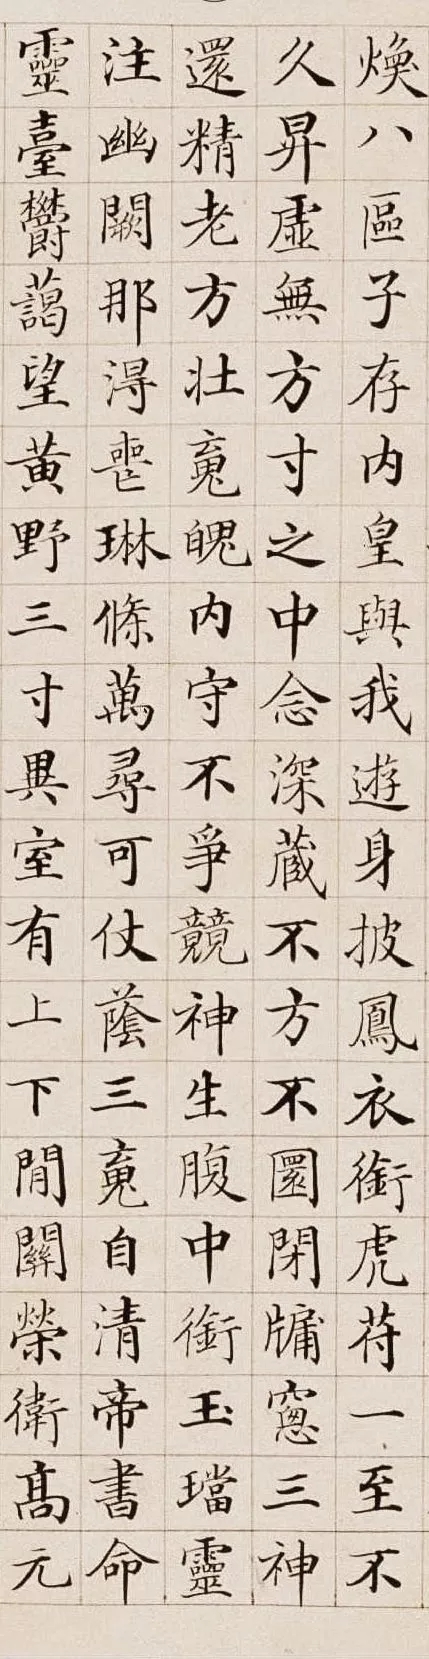 煥八區子存内皇與我遊身披鳳衣銜虎苻一至不
久昇虛無方寸之中念深藏不方不圓閉牖窓三神
還精老方壯䰟魄内守不爭競神生腹中銜玉璫靈
注幽闕那淂喪琳條萬尋可仗蔭三䰟自清帝書命
靈臺鬱藹望黄野三寸異室有上下閒關榮衛髙元